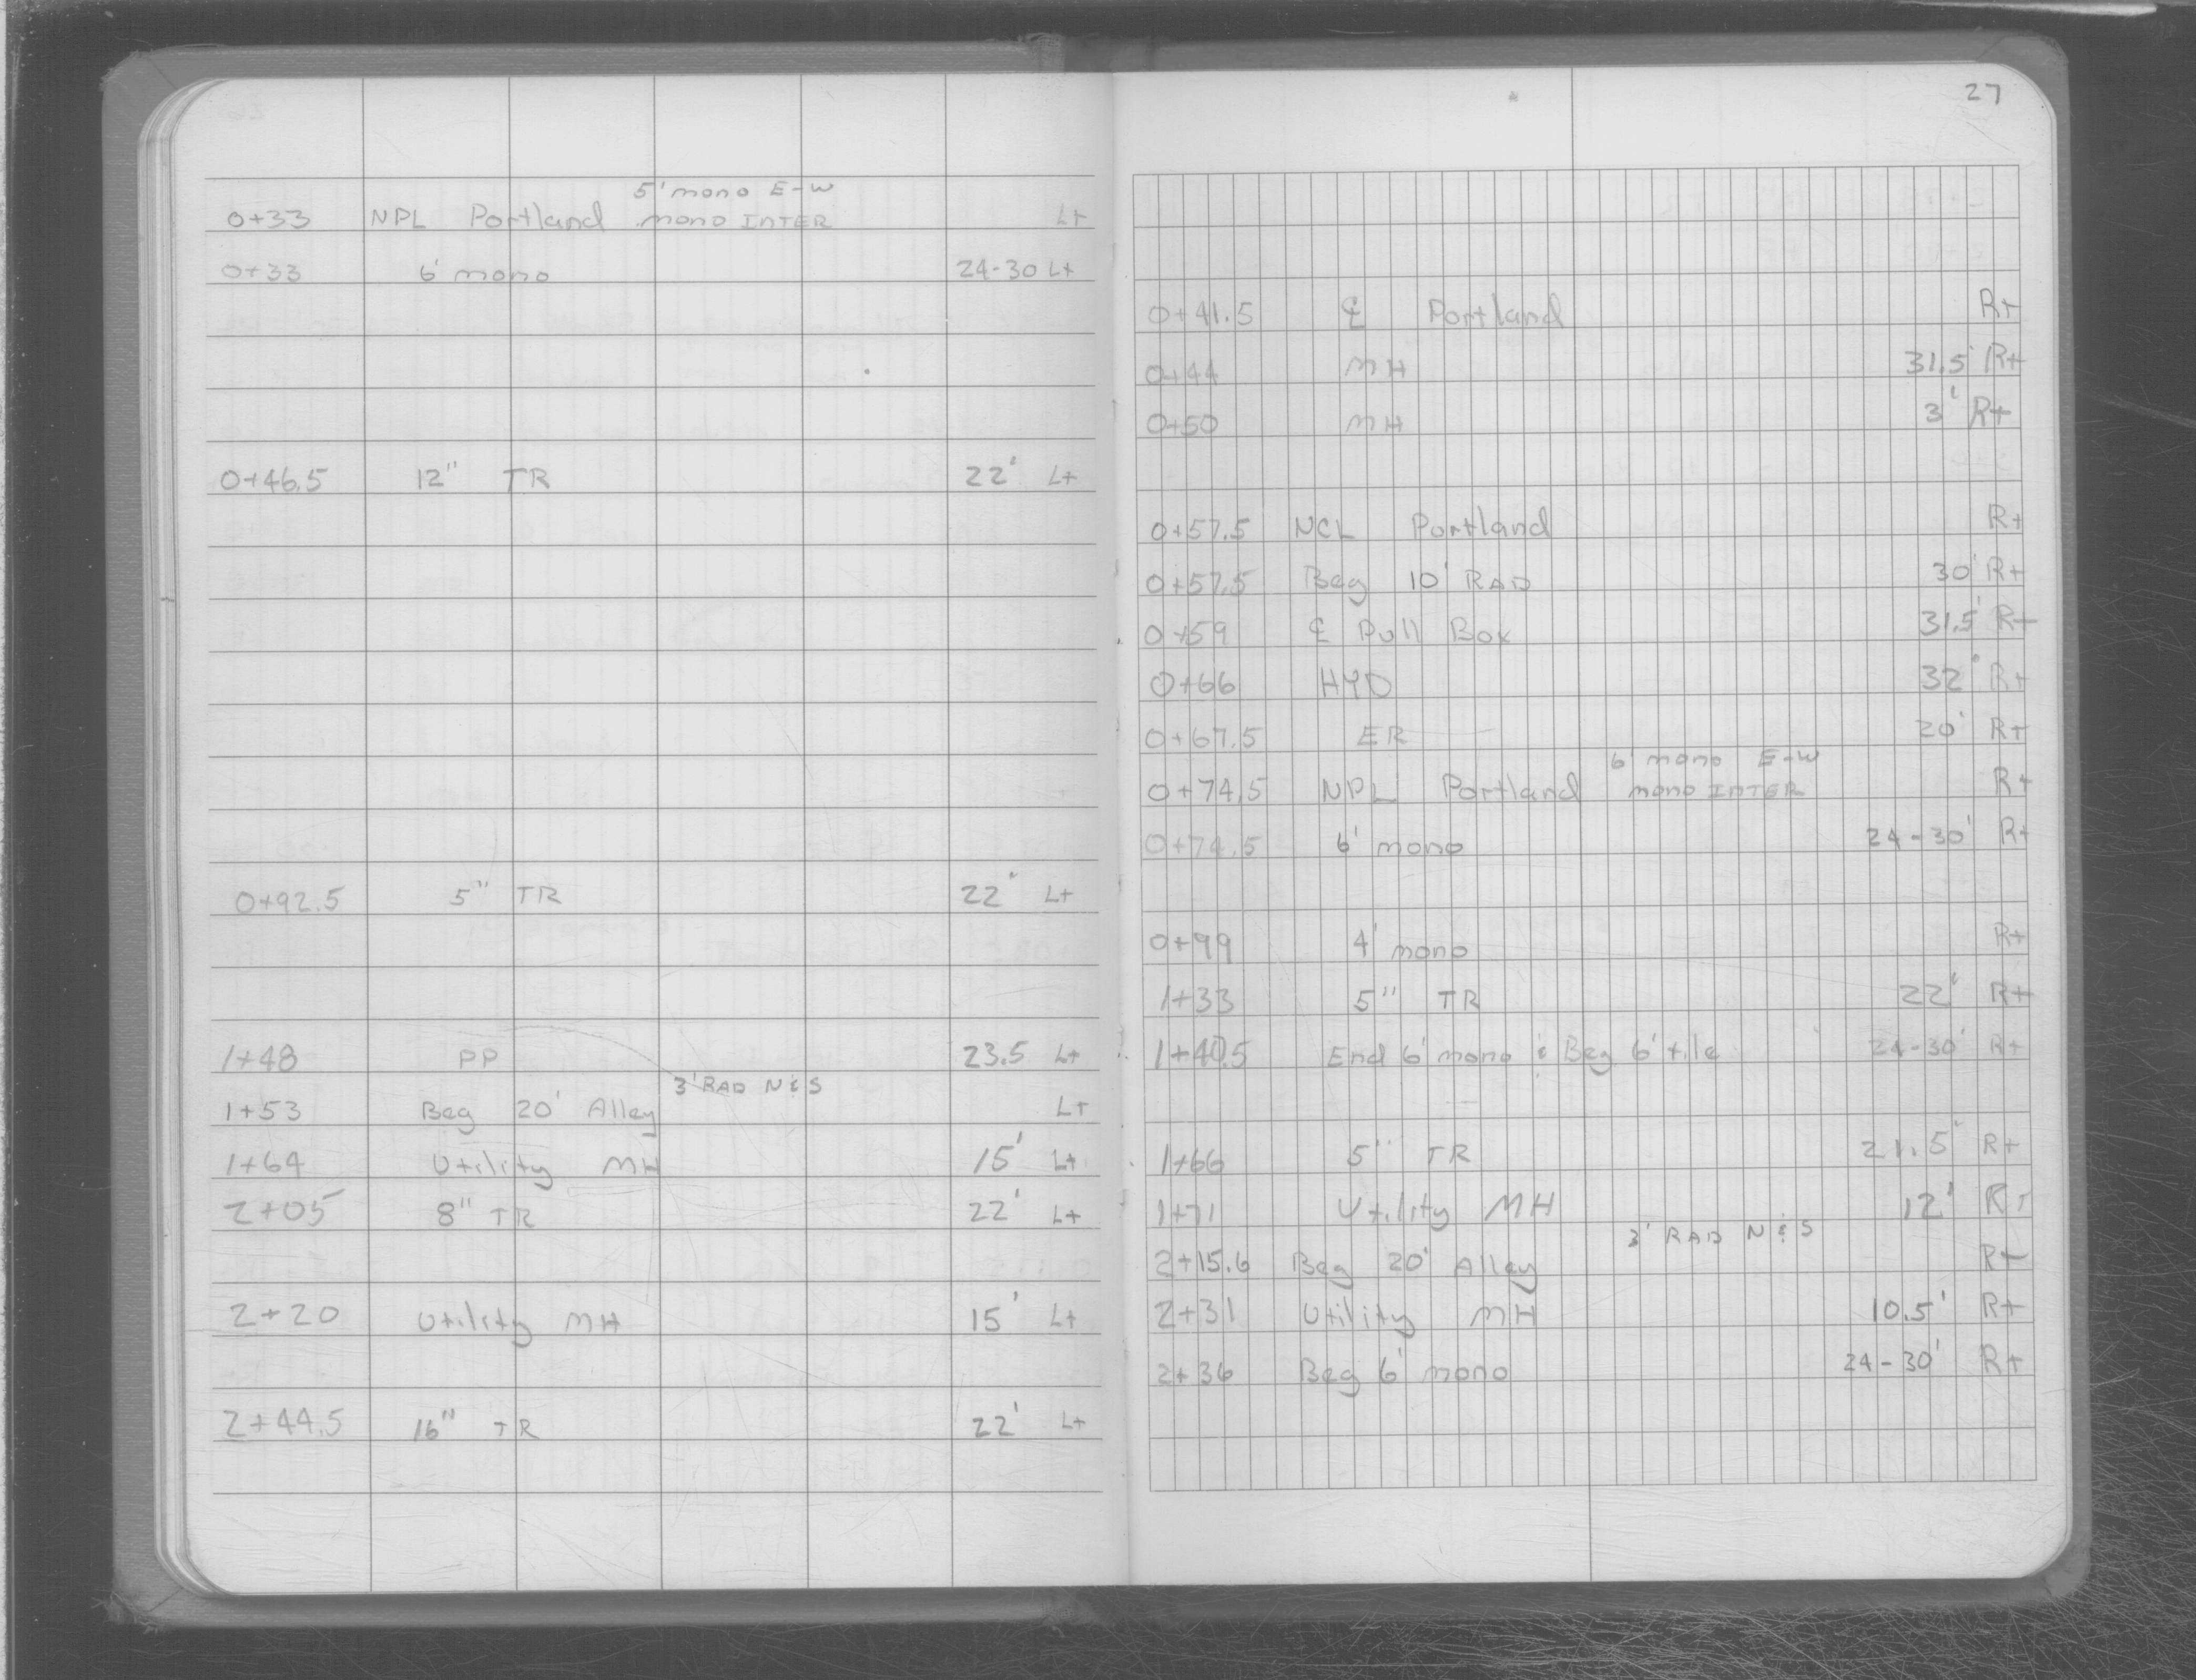 5' mono E-W
0+33 NPL Portland mono INTER Lt
0+33 6' mono 24-30 Lt
0+46.5 12" TR 22' Lt
0+92.5 5" TR 22' Lt
1+48 PP 23.5 Lt
3' RAD N & S
1+53 Beg 20' Alley Lt
1+64 Utility MH 15' Lt
2+05 8" TR 22' Lt
2+20 Utility MH 15' Lt
2+44.5 16" TR 22' Lt
27
0+41.5 ℄ Portland Rt
0+44 MH 31.5' Rt
0+50 MH 3' Rt
0+57.5 NCL Portland Rt
0+57.5 Beg 10' RAD 30' Rt
0+59 ℄ Pull Box 31.5' Rt
0+66 HYD 32' Rt
0+67.5 ER 20' Rt
6' mono E-W
0+74.5 NPL Portland mono INTER Rt
0+74.5 6' mono 24-30' Rt
0+99 4' mono Rt
1+33 5" TR 22' Rt
1+40.5 End 6' mono & Beg 6' tile 24-30' Rt
1+66 5" TR 21.5' Rt
1+71 Utility MH 12' Rt
3' RAD N & S
2+15.6 Beg 20' Alley Rt
2+31 Utility MH 10.5' Rt
2+36 Beg 6' mono 24-30' Rt